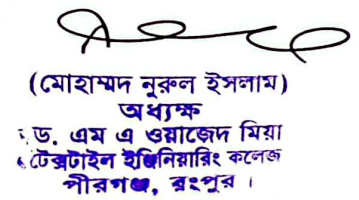 (মোহাম্মদ নুরুল ইসলাম)
অধ্যক্ষ
ড. এম এ ওয়াজেদ মিয়া
টেক্সটাইল ইঞ্জিনিয়ারিং কলেজ
পীরগঞ্জ, রংপুর ।